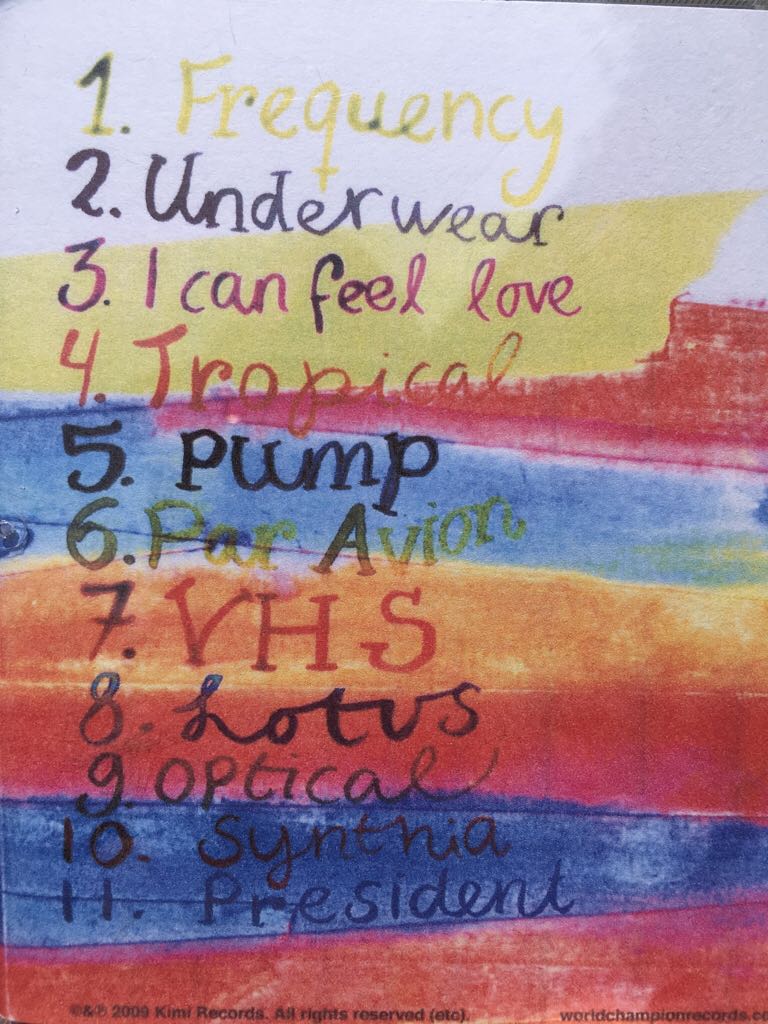 1. Frequency
2. Underwear
3. I can feel love
4. Tropical
5. Pump
6. Par Avion
7. VHS
8. Lotus
9. Optical
10. Synthia
11. President
©&℗ 2009 Kimi Records. All rights reserved (etc). worldchampionrecords.co